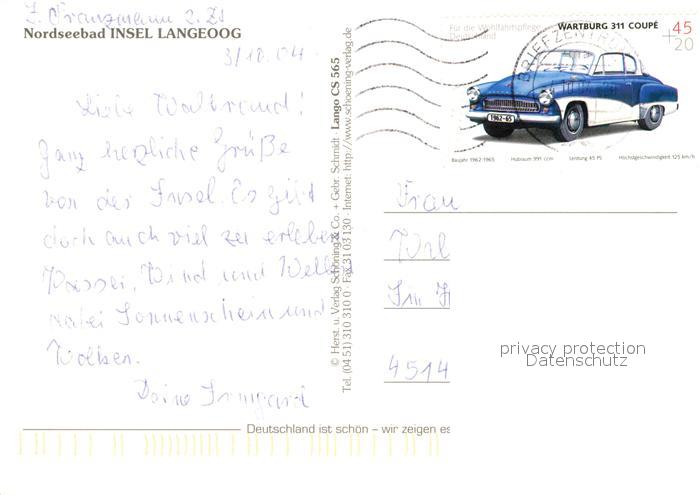 I. Franzmann z. Zt
Nordseebad INSEL LANGEOOG
3/10.04.
Liebe Waltraud!
Ganz herzliche Grüße
von der Insel. Es gibt
doch auch viel zu erleben
Wasser, Wind und Wellen
dabei Sonnenschein und
Wolken.
Deine Irmgard
Deutschland ist schön – wir zeigen es
© Herst. u. Verlag Schöning & Co. + Gebr. Schmidt · Lango CS 565
Tel. (04 51) 310 310 0 · Fax 31 03 130 · Internet: http://www.schoening-verlag.de
Für die Wohlfahrtspflege
Deutschland
WARTBURG 311 COUPÉ
45
+20
BRIEFZENTRUM
1962-65
Baujahr 1962-1965 Hubraum 991 ccm Leistung 45 PS Höchstgeschwindigkeit 125 km/h
Frau
Im
4514
privacy protection
Datenschutz